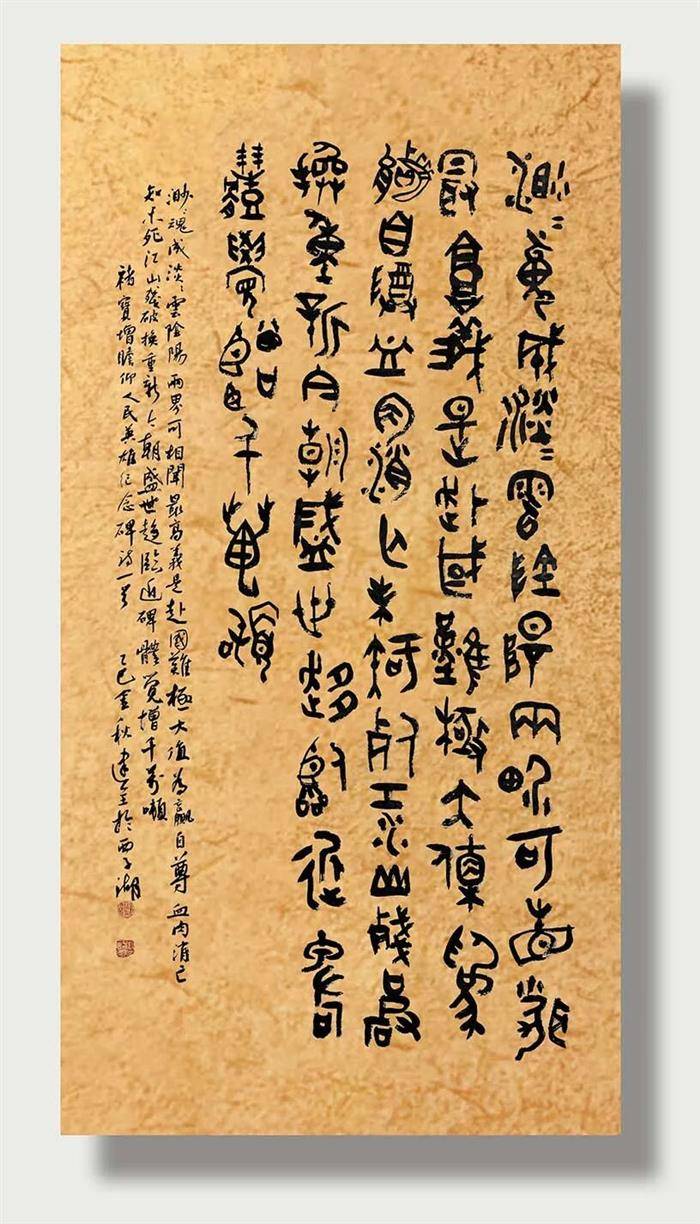 渺渺魂成淡淡雲陰陽兩界可相聞
最高義是赴國難極大值為
贏自尊血肉消已知不死江山殘破
換重新今朝盛世趨臨近碑
體覺增千萬噸
渺渺魂成淡淡雲陰陽兩界可相聞最高義是赴國難極大值為贏自尊血肉消已
知不死江山殘破換重新今朝盛世趨臨近碑體覺增千萬噸
褚寶增瞻仰人民英雄紀念碑詩一首 乙巳金秋建於西子湖